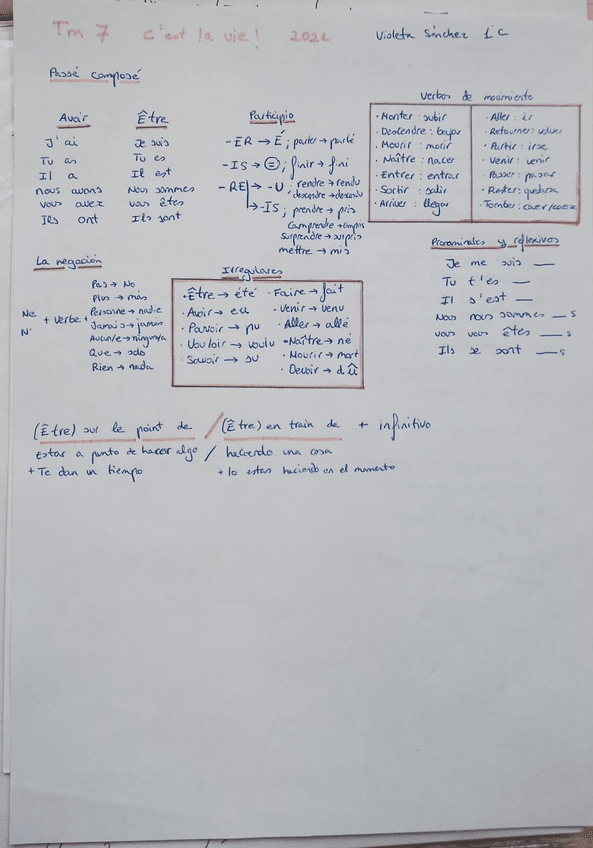 Tm 7 C'est la vie! 2021 Violeta Sánchez 1ºC
Passé composé
Avoir
J'ai
Tu as
Il a
nous avons
vous avez
Ils ont
Être
Je suis
Tu es
Il est
Nous sommes
vous êtes
Ils sont
Participio
-ER → É; parler → parlé
-IS → =; finir → fini
-RE → -U; rendre → rendu
descendre → descendu
→ -IS; prendre → pris
Comprendre → compris
Surprendre → surpris
mettre → mis
Verbos de movimiento
· Monter: subir
· Descendre: bajar
· Mourir: morir
· Naître: nacer
· Entrer: entrar
· Sortir: salir
· Arriver: llegar
· Aller: ir
· Retourner: volver
· Partir: irse
· Venir: venir
· Passer: pasar
· Rester: quedarse
· Tomber: caer/caerse
Pronominales y reflexivos
Je me suis __
Tu t'es __
Il s'est __
Nous nous sommes __s
vous vous êtes __s
Ils se sont __s
La negación
Ne
N'
+ verbe +
Pas → No
Plus → más
Personne → nadie
Jamais → jamás
Aucun/e → ningun/a
Que → solo
Rien → nada
Irregulares
· Être → été
· Avoir → eu
· Pouvoir → pu
· Vouloir → voulu
· Savoir → su
· Faire → fait
· Venir → venu
· Aller → allé
· Naître → né
· Mourir → mort
· Devoir → dû
(Être) sur le point de / (Être) en train de + infinitivo
Estar a punto de hacer algo / haciendo una cosa
+ Te dan un tiempo + lo estas haciendo en el momento